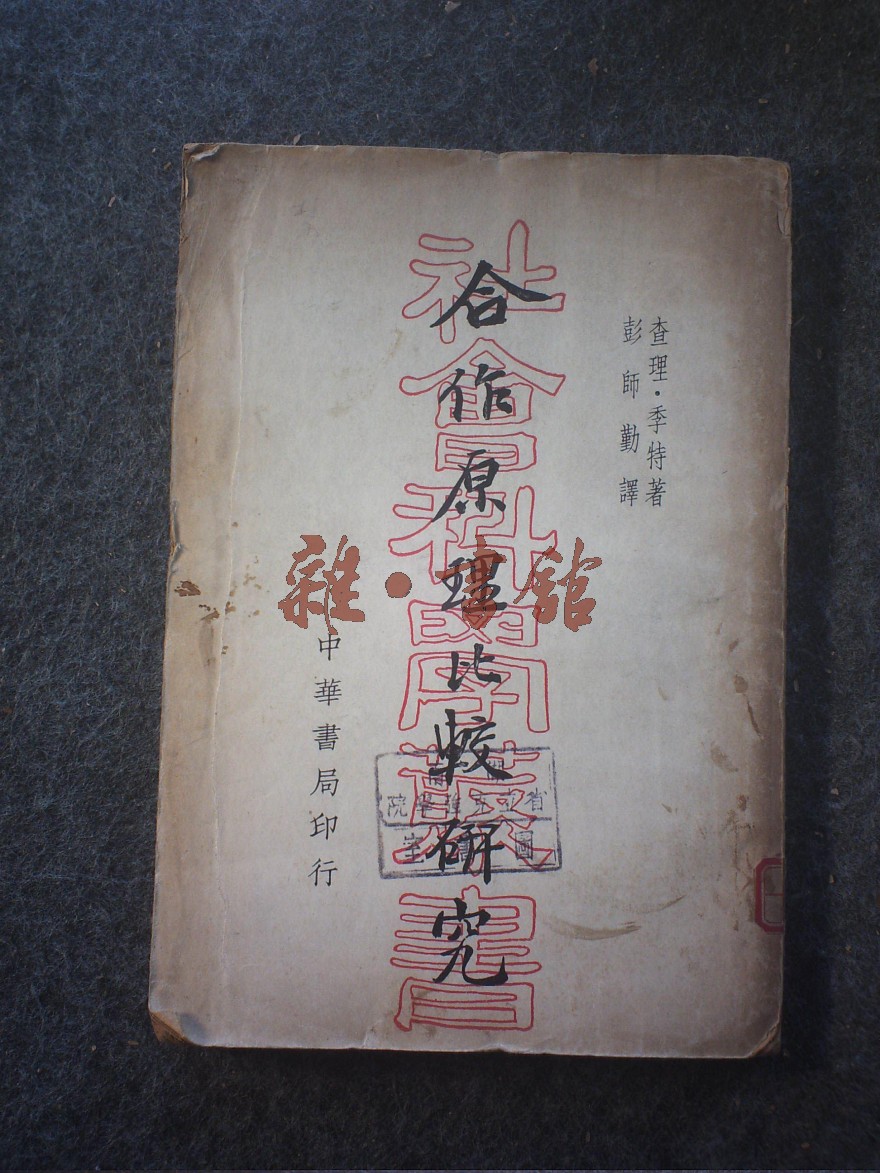 查理·季特著
彭師勤譯
合作原理比較研究
社會科學叢書
中華書局印行
雜·書館
省立克強學院